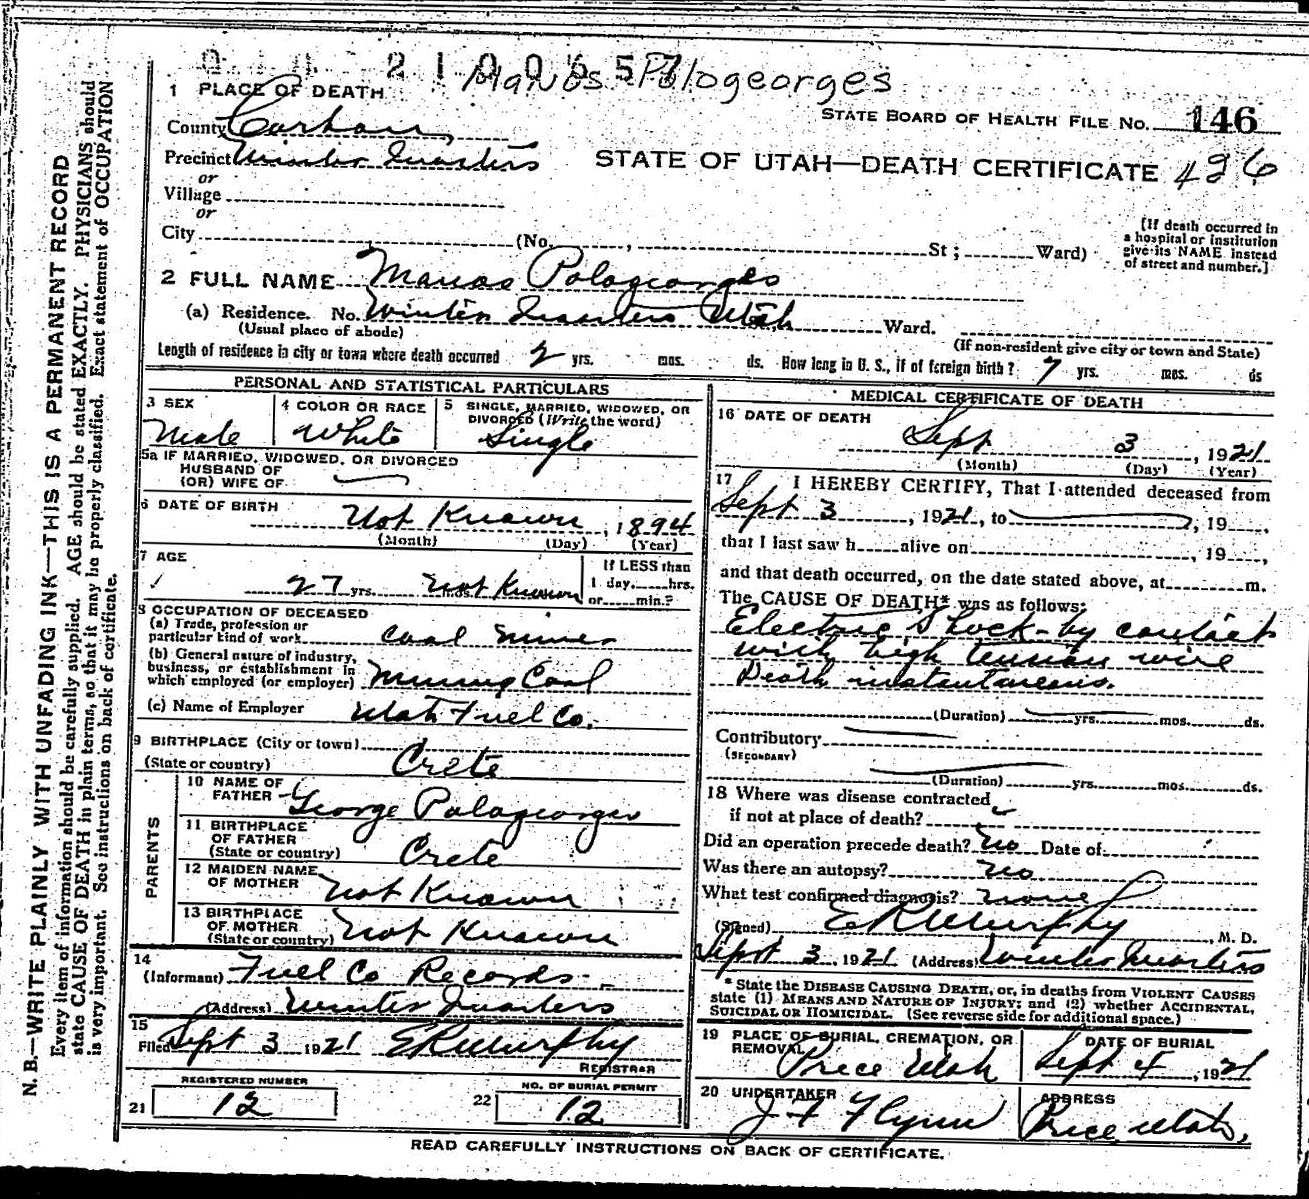 2100657
Manos Pologeorges
1 PLACE OF DEATH
STATE BOARD OF HEALTH FILE No. 146
County Carbon
Precinct Winter Quarters
STATE OF UTAH—DEATH CERTIFICATE 426
or
Village
or
City (No. , St ; Ward)
[If death occurred in a hospital or institution give its NAME instead of street and number.]
2 FULL NAME Manos Pologeorges
(a) Residence. No. Winter Quarters Utah Ward.
(Usual place of abode) (If non-resident give city or town and State)
Length of residence in city or town where death occurred 2 yrs. mos. ds. How long in U. S., if of foreign birth? 7 yrs. mos. ds
PERSONAL AND STATISTICAL PARTICULARS
3 SEX Male
4 COLOR OR RACE White
5 SINGLE, MARRIED, WIDOWED, OR DIVORCED (Write the word) Single
5a IF MARRIED, WIDOWED, OR DIVORCED
HUSBAND OF
(OR) WIFE OF
6 DATE OF BIRTH Not Known , 1894
(Month) (Day) (Year)
7 AGE 27 yrs. Not Known
If LESS than 1 day, hrs. or min.?
8 OCCUPATION OF DECEASED
(a) Trade, profession or particular kind of work Coal Miner
(b) General nature of industry, business, or establishment in which employed (or employer) Mining Coal
(c) Name of Employer Utah Fuel Co.
9 BIRTHPLACE (City or town)
(State or country) Crete
PARENTS
10 NAME OF FATHER George Pologeorges
11 BIRTHPLACE OF FATHER (State or country) Crete
12 MAIDEN NAME OF MOTHER Not Known
13 BIRTHPLACE OF MOTHER (State or country) Not Known
14 (Informant) Fuel Co Records
(Address) Winter Quarters
15 Filed Sept 3 1921 E R Murphy
REGISTRAR
REGISTERED NUMBER
21 12
NO. OF BURIAL PERMIT
22 12
MEDICAL CERTIFICATE OF DEATH
16 DATE OF DEATH
Sept 3 , 1921
(Month) (Day) (Year)
17 I HEREBY CERTIFY, That I attended deceased from
Sept 3 , 1921, to , 19 ,
that I last saw h alive on , 19 ,
and that death occurred, on the date stated above, at m.
The CAUSE OF DEATH* was as follows:
Electric Shock - by contact
with high tension wire
Death instantaneous.
(Duration) yrs. mos. ds.
Contributory
(SECONDARY)
(Duration) yrs. mos. ds.
18 Where was disease contracted
if not at place of death?
Did an operation precede death? No Date of
Was there an autopsy? No
What test confirmed diagnosis? None
(Signed) E R Murphy , M. D.
Sept 3 1921 (Address) Winter Quarters
* State the DISEASE CAUSING DEATH, or, in deaths from VIOLENT CAUSES
state (1) MEANS AND NATURE OF INJURY; and (2) whether ACCIDENTAL,
SUICIDAL OR HOMICIDAL. (See reverse side for additional space.)
19 PLACE OF BURIAL, CREMATION, OR REMOVAL Price Utah
DATE OF BURIAL Sept 4 , 1921
20 UNDERTAKER J F Flynn
ADDRESS Price Utah.
READ CAREFULLY INSTRUCTIONS ON BACK OF CERTIFICATE.
N. B.—WRITE PLAINLY WITH UNFADING INK—THIS IS A PERMANENT RECORD
Every item of information should be carefully supplied. AGE should be stated EXACTLY. PHYSICIANS should
state CAUSE OF DEATH in plain terms, so that it may be properly classified. Exact statement of OCCUPATION
is very important. See instructions on back of certificate.